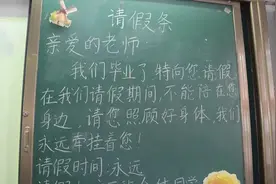 请假条
亲爱的老师
我们毕业了,特向您请假
在我们请假期间,不能陪在您
身边,请您照顾好身体,我们
永远牵挂着您!
请假时间:永远